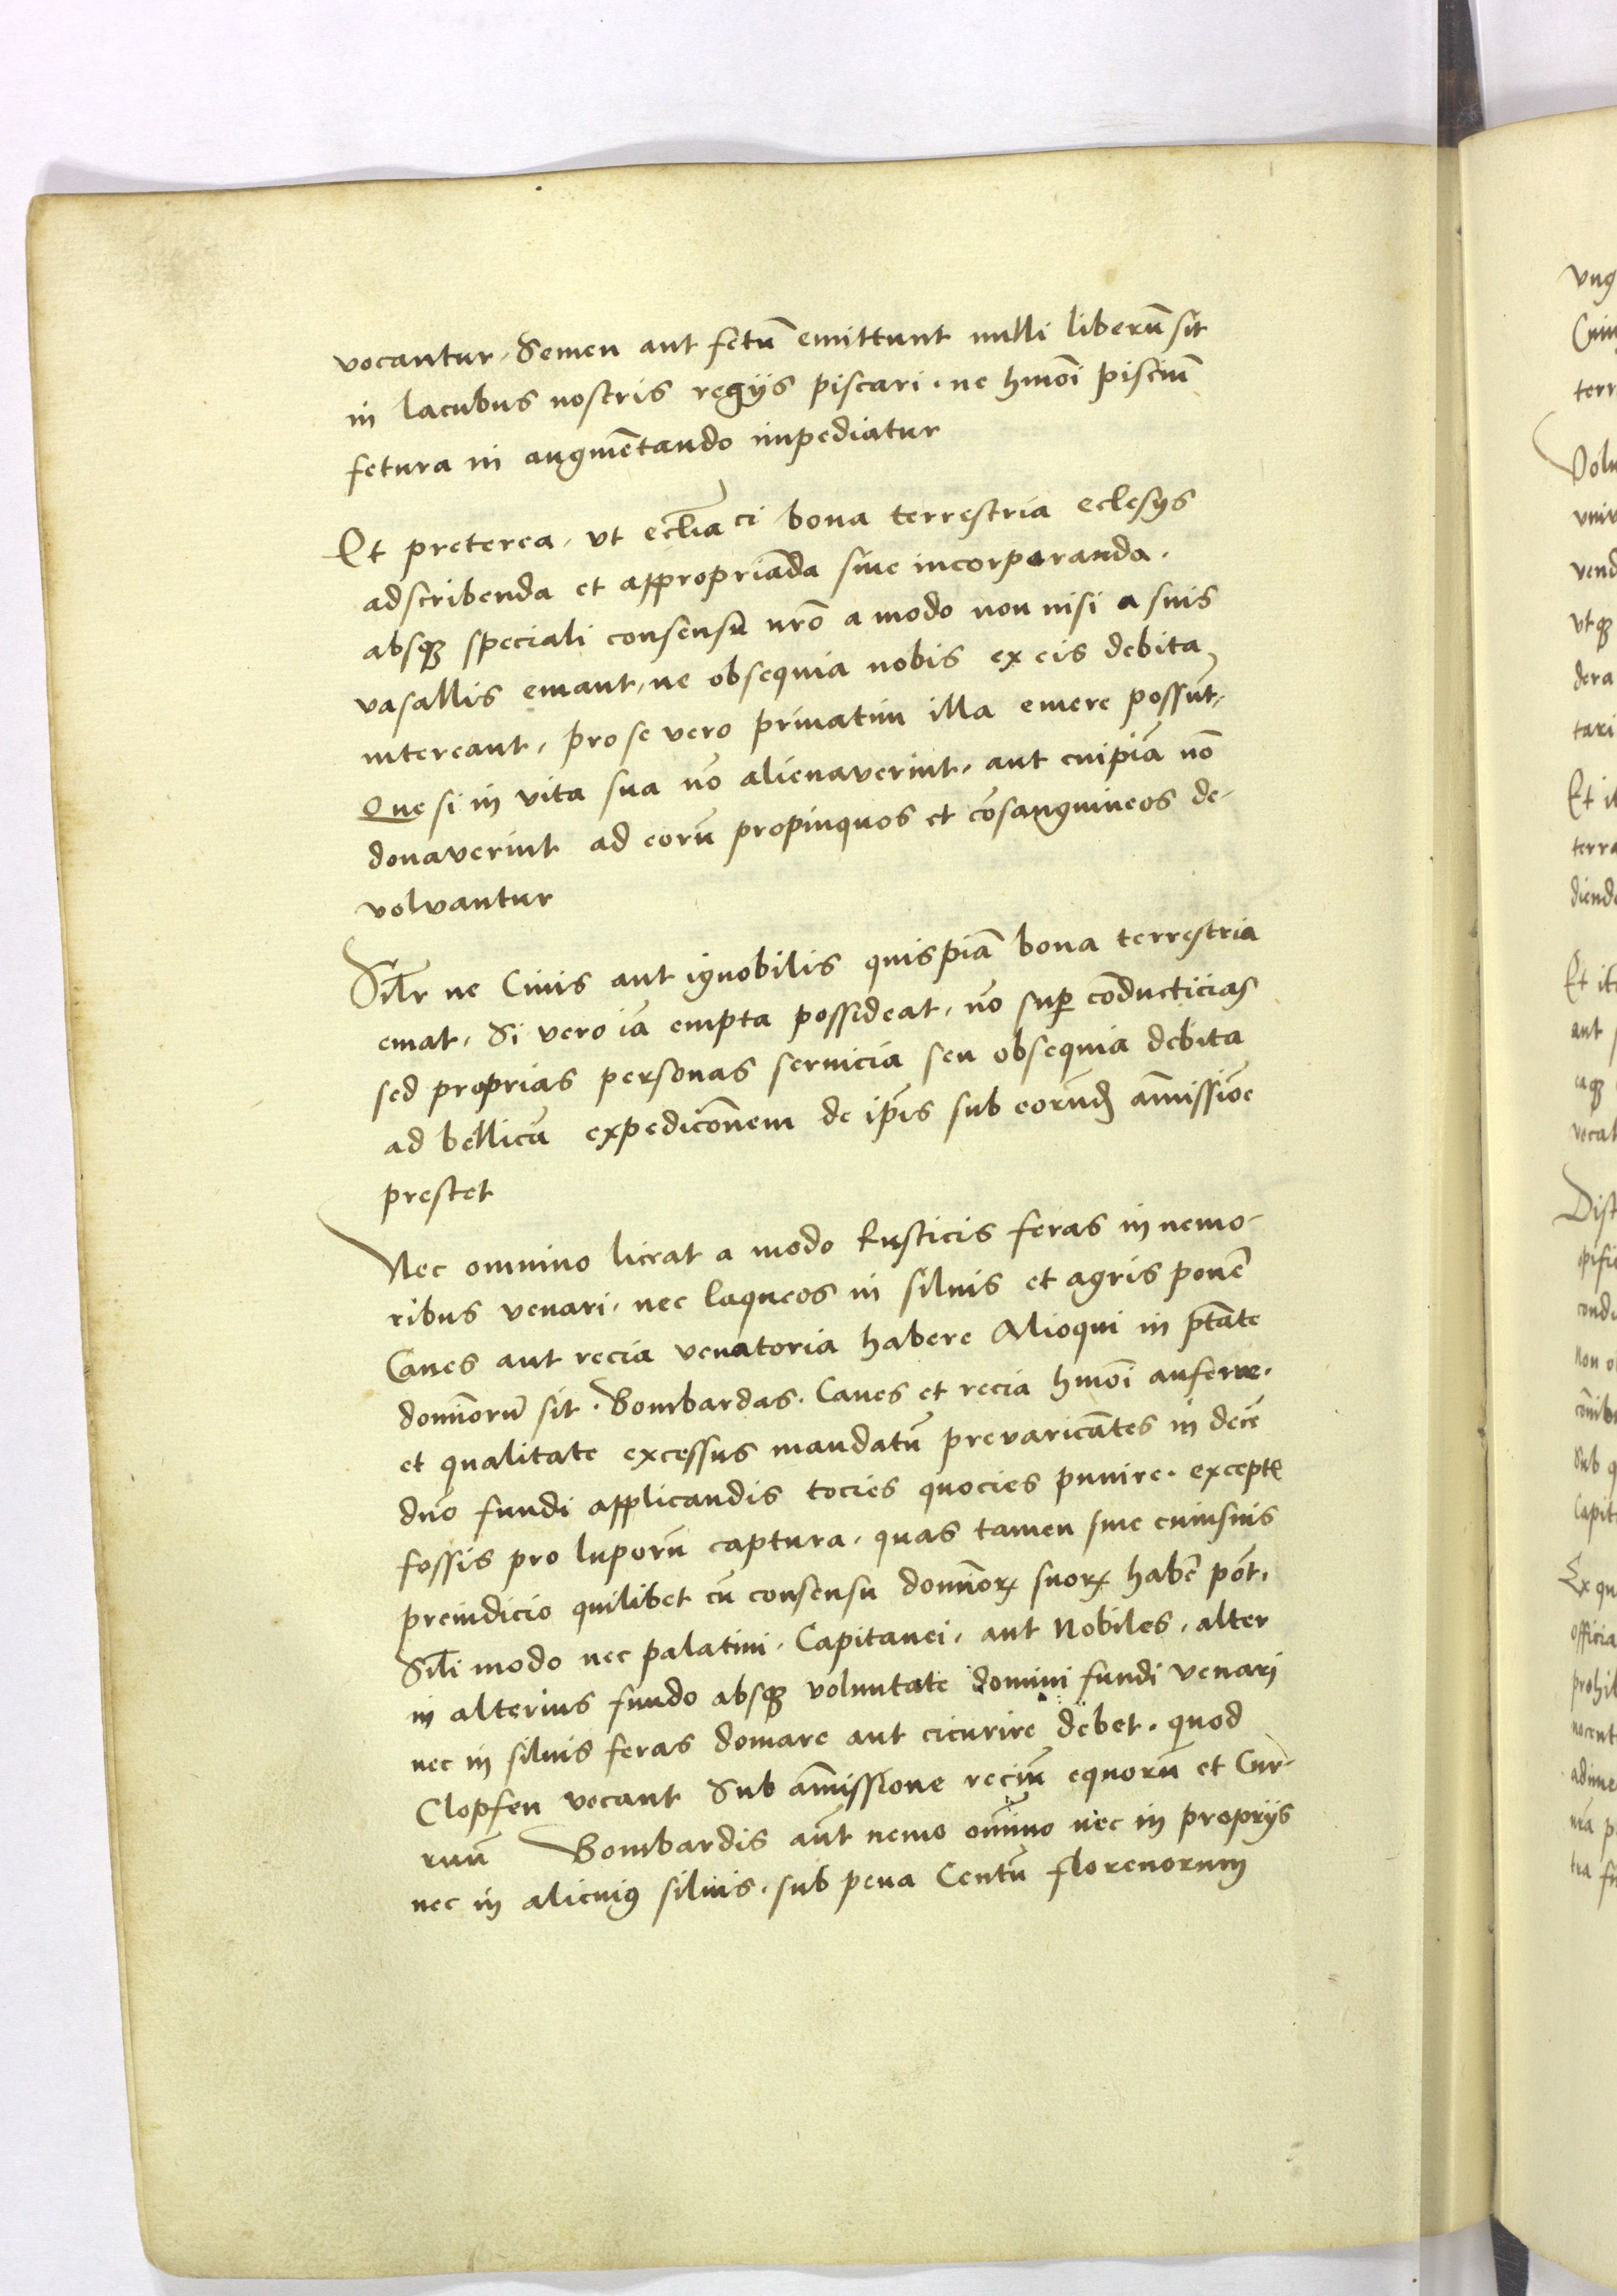 vocantur, Semen aut fetū emittunt nulli liberū sit
in lacubus nostris regijs piscari. ne hmōi pisciū
fetura in augmētando impediatur
Et preterea, vt eccl̄iaci bona terrestria eclesÿs
adscribenda et approprianda siue incorporanda.
absq3 speciali consensu nrō a modo non nisi a suis
vasallis emant, ne obsequia nobis ex eis debita
intereant, pro se vero priuatim illa emere possūt,
Que si in vita sua nō alienaverint, aut cuipiā nō
donaverint ad eorū propinquos et cōsanguineos de-
volvantur
Silr ne Ciuis aut ignobilis quispiā bona terrestria
emat, Si vero iā empta possideat, nō sup̄ conducticias
sed proprias personas seruicia seu obsequia debita
ad bellicā expedicōnem de ip̄is sub eorund̄ am̄issiōe
prestet
Nec omnino liceat a modo Rusticis feras in nemo-
ribus venari, nec laqueos in siluis et agris ponē
Canes aut recia venatoria habere Alioqui in p̄tāte
dominorū sit. Bombardas. Canes et recia hmōi auferre.
et qualitate excessus mandatū prevaricātes in decē
dn̄o fundi applicandis tocies quocies punire. except̄
fossis pro luporū captura, quas tamen sine cuiusuis
preiudicio quilibet cū consensu dominoꝝ suoꝝ habē pōt,
Sil̄i modo nec palatini, Capitanei, aut Nobiles, alter
in alterius fundo absq3 voluntate domini fundi venari
nec in siluis feras domare aut cicurire debet. quod
Clopfen vocant Sub am̄issione reciū equorū et Cur-
ruū Bombardis aūt nemo om̄ino nec in proprijs
nec in alicuiꝰ siluis, sub pena Centū florenorum
vng
terr
Volu
vend
vtq3
dera
tari
Et it
terra
diend
Et ite
aut
vocat
Dist
condu
non o
Sub q
Capit
Ex qu
officia
prohib
nocent
adime